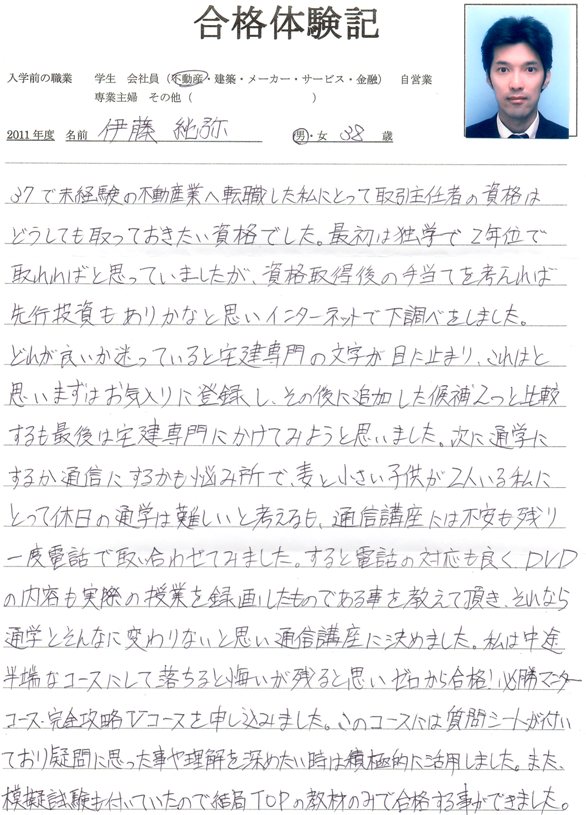 合格体験記
入学前の職業 学生 会社員（不動産・建築・メーカー・サービス・金融） 自営業
専業主婦 その他（ ）
2011年度 名前 伊藤 純弥 男・女 38 歳
37で未経験の不動産業へ転職した私にとって取引主任者の資格は
どうしても取っておきたい資格でした。最初は独学で2年位で
取れればと思っていましたが、資格取得後の手当てを考えれば
先行投資もありかなと思いインターネットで下調べをしました。
どれが良いか迷っていると宅建専門の文字が目に止まり、これはと
思いまずはお気入りに登録し、その後に追加した候補2つと比較
するも最後は宅建専門にかけてみようと思いました。次に通学に
するか通信にするかも悩み所で、妻と小さい子供が2人いる私に
とって休日の通学は難しいと考えるも、通信講座には不安も残り
一度電話で取い合わせてみました。すると電話の対応も良くDVD
の内容も実際の授業を録画したものである事を教えて頂き、それなら
通学とそんなに変わりないと思い通信講座に決めました。私は中途
半端なコースにして落ちると悔いが残ると思いゼロから合格！必勝マスター
コース・完全攻略Vコースを申し込みました。このコースには質問シートが付い
ており疑問に思った事や理解を深めたい時は積極的に活用しました。また、
模擬試験も付いていたので結局TOPの教材のみで合格する事ができました。